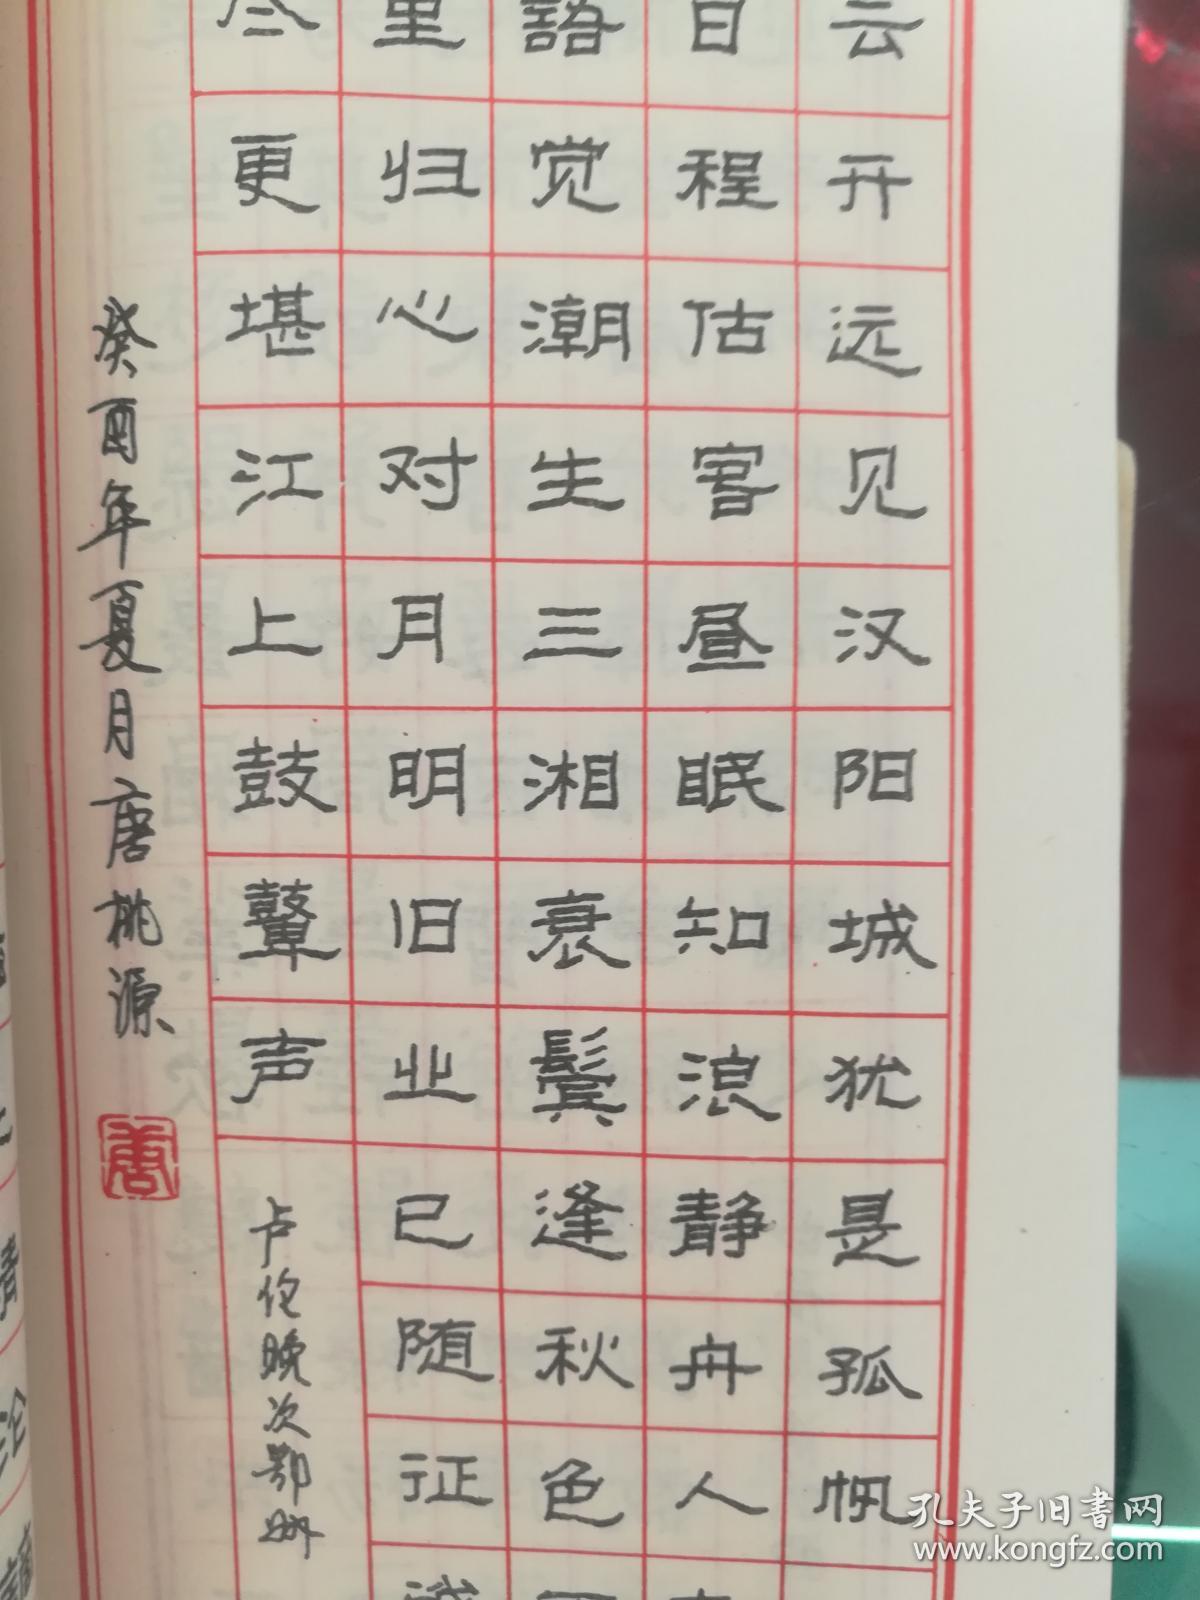 云开远见汉阳城犹是孤帆
日程估客昼眠知浪静舟人
語觉潮生三湘衰鬓逢秋色
里归心对月明旧业已随征
尽更堪江上鼓鼙声
卢伦晚次鄂州
癸酉年夏月唐桃源
唐
孔夫子旧书网
www.kongfz.com